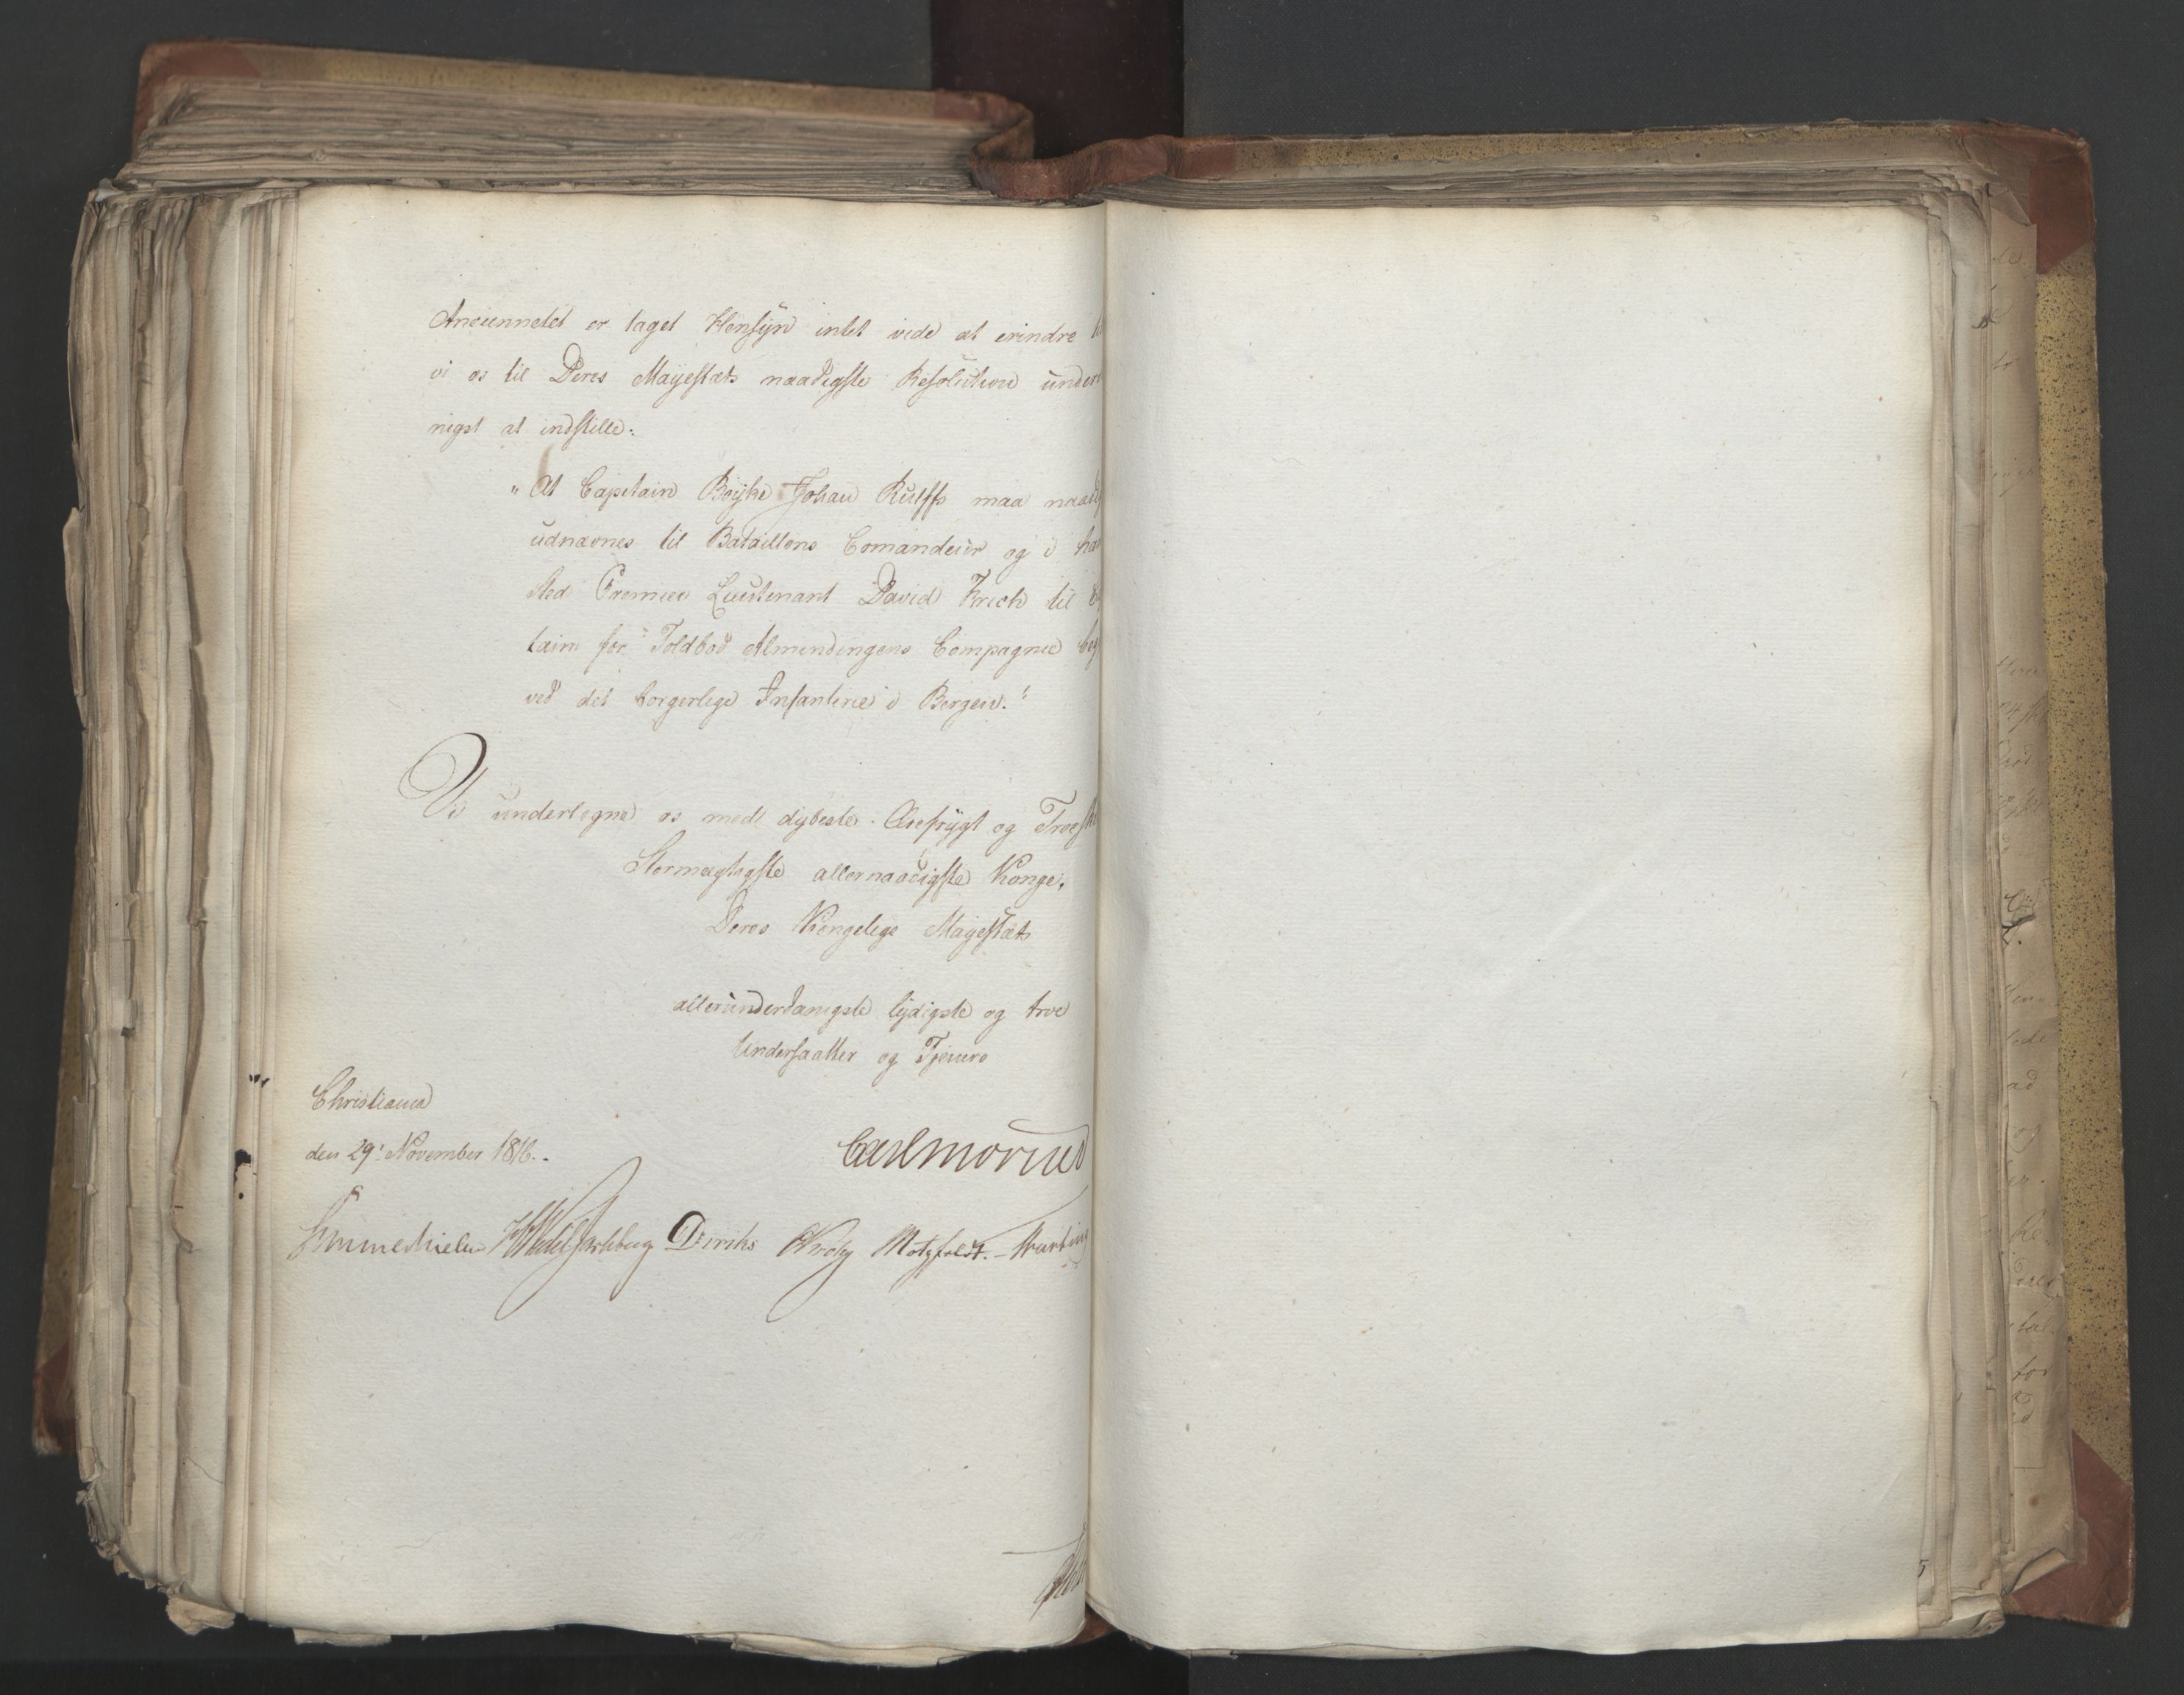 Anciennetet er taget Hensÿn intet vide at erindre
vi os til Deres Mayestæts naadigste Resolution under
nigst at indstille:
"At Capitain Böyke Johan Rulffs maa naad
udnævnes til Bataillons Comandeur og i ha
Sted Premier Lieutenant David Krich til
tain for Toldbod Almendingens Compagnie
ved det borgerlige Infanterie i Bergen."
Vi undertegne os med dybeste Ærefrygt og Troesk
Stormægtigste allernaadigste Konge,
Deres Kongelige Mayestæts
allerunderdanigste lydigste og troe
Undersaatter og Tjenere
Christiania
den 29' November 1816.
Carl Mörner
Sommerhielm HWedel Jarlsberg Diriks Krohg Motzfeldt.